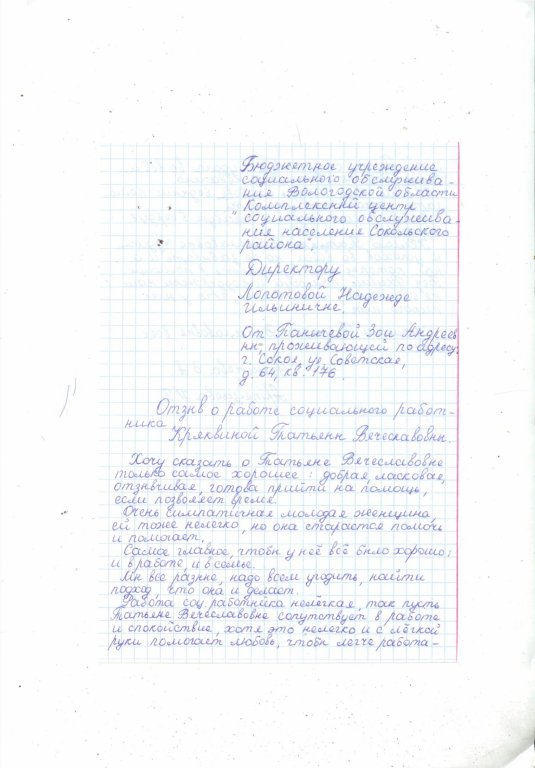 Бюджетное учреждение
социального обслужива-
ния Вологодской области
"Комплексный центр
социального обслужива-
ния населения Сокольского
района".
Директору
Лопотовой Надежде
Ильиничне.
От Паничевой Зои Андреев
ны, проживающей по адресу:
г. Сокол, ул. Советская,
д. 64, кв. 176.
Отзыв о работе социального работ-
ника
Кряквиной Татьяны Вечеславовны.
Хочу сказать о Татьяне Вечеславовне
только самое хорошее: добрая, ласковая,
отзывчивая, готова прийти на помощь,
если позволяет время.
Очень симпатичная молодая женщина,
ей тоже нелегко, но она старается помочь
и помогает.
Самое главное, чтобы у неё всё было хорошо:
и в работе, и в семье.
Мы все разные, надо всем угодить, найти
подход, что она и делает.
Работа соц. работника нелёгкая, так пусть
Татьяне Вечеславовне сопутствует в работе
и спокойствие, хотя это нелегко и с лёгкой
руки помогает любовь, чтобы легче работа-